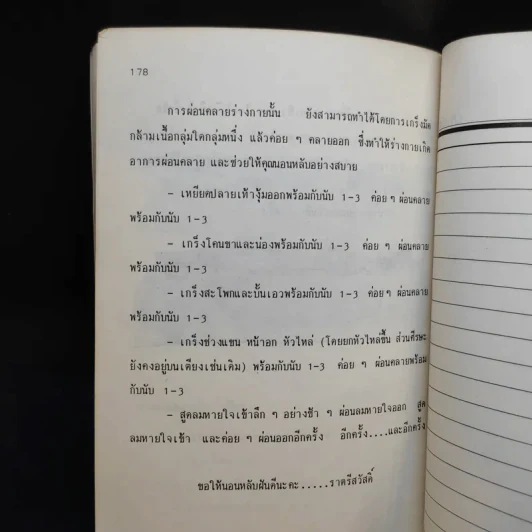 178
การผ่อนคลายร่างกายนั้น ยังสามารถทำได้โดยการเกร็งมัด
กล้ามเนื้อกลุ่มใดกลุ่มหนึ่ง แล้วค่อย ๆ คลายออก ซึ่งทำให้ร่างกายเกิด
อาการผ่อนคลาย และช่วยให้คุณนอนหลับอย่างสบาย
- เหยียดปลายเท้างุ้มออกพร้อมกับนับ 1-3 ค่อย ๆ ผ่อนคลาย
พร้อมกับนับ 1-3
- เกร็งโคนขาและน่องพร้อมกับนับ 1-3 ค่อย ๆ ผ่อนคลาย
พร้อมกับนับ 1-3
- เกร็งสะโพกและบั้นเอวพร้อมกับนับ 1-3 ค่อย ๆ ผ่อนคลาย
พร้อมกับนับ 1-3
- เกร็งช่วงแขน หน้าอก หัวไหล่ (โดยยกหัวไหล่ขึ้น ส่วนศีรษะ
ยังคงอยู่บนเตียงเช่นเดิม) พร้อมกับนับ 1-3 ค่อย ๆ ผ่อนคลายพร้อม
กับนับ 1-3
- สูดลมหายใจเข้าลึก ๆ อย่างช้า ๆ ผ่อนลมหายใจออก สูด
ลมหายใจเข้า และค่อย ๆ ผ่อนออกอีกครั้ง อีกครั้ง....และอีกครั้ง
ขอให้นอนหลับฝันดีนะคะ.....ราตรีสวัสดิ์